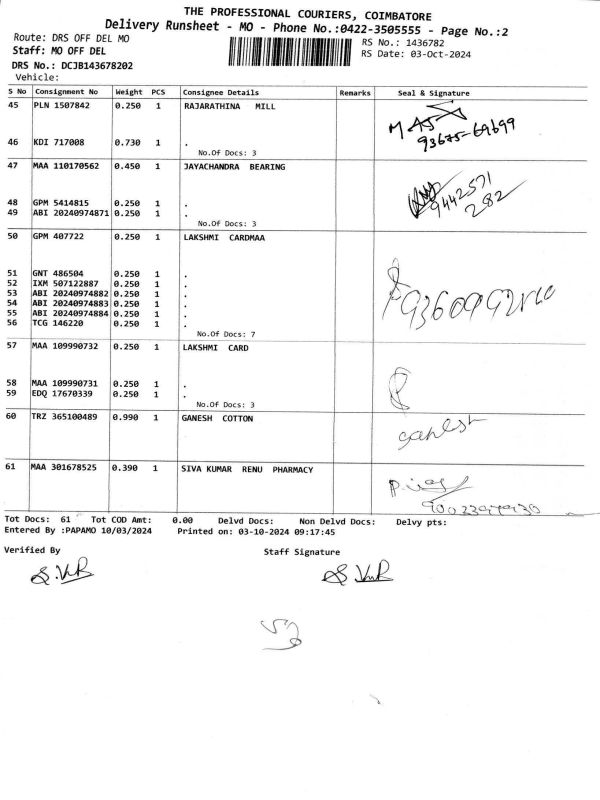 THE PROFESSIONAL COURIERS, COIMBATORE
Delivery Runsheet - MO - Phone No.:0422-3505555 - Page No.:2
Route: DRS OFF DEL MO RS No.: 1436782
Staff: MO OFF DEL RS Date: 03-Oct-2024
DRS No.: DCJB143678202
Vehicle:
S No Consignment No Weight PCS Consignee Details Remarks Seal & Signature
45 PLN 1507842 0.250 1 RAJARATHINA MILL
93675-69699
46 KDI 717008 0.730 1 .
No.Of Docs: 3
47 MAA 110170562 0.450 1 JAYACHANDRA BEARING
9442571
282
48 GPM 5414815 0.250 1 .
49 ABI 20240974871 0.250 1 .
No.Of Docs: 3
50 GPM 407722 0.250 1 LAKSHMI CARDMAA
51 GNT 486504 0.250 1 .
52 IXM 507122887 0.250 1 .
53 ABI 20240974882 0.250 1 .
54 ABI 20240974883 0.250 1 .
55 ABI 20240974884 0.250 1 .
56 TCG 146220 0.250 1 .
No.Of Docs: 7
57 MAA 109990732 0.250 1 LAKSHMI CARD
58 MAA 109990731 0.250 1 .
59 EDQ 17670339 0.250 1 .
No.Of Docs: 3
60 TRZ 365100489 0.990 1 GANESH COTTON
ganesh
61 MAA 301678525 0.390 1 SIVA KUMAR RENU PHARMACY
Tot Docs: 61 Tot COD Amt: 0.00 Delvd Docs: Non Delvd Docs: Delvy pts:
Entered By :PAPAMO 10/03/2024 Printed on: 03-10-2024 09:17:45
Verified By Staff Signature